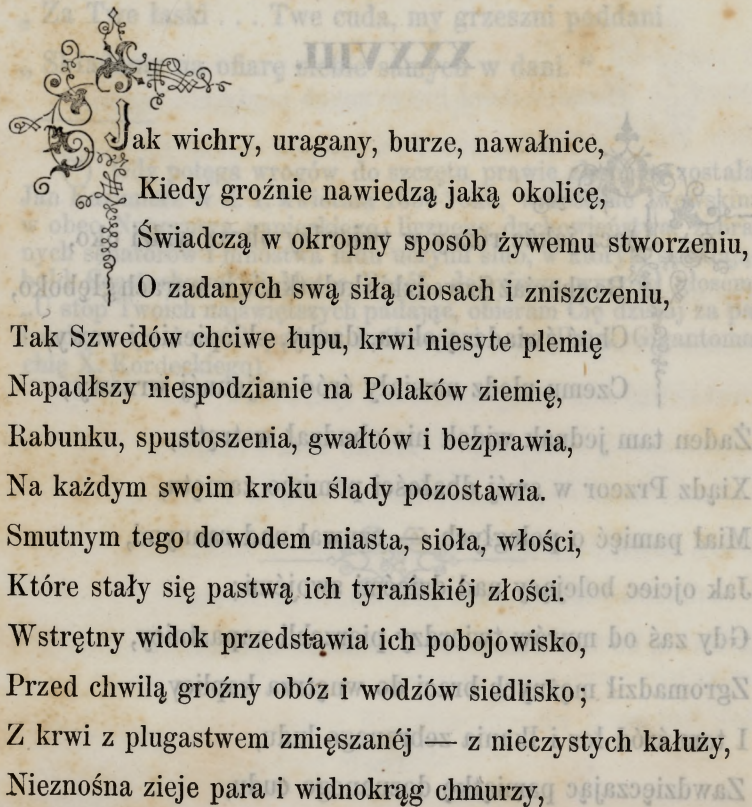 Jak wichry, uragany, burze, nawałnice,
Kiedy groźnie nawiedzą jaką okolicę,
Świadczą w okropny sposób żywemu stworzeniu,
O zadanych swą siłą ciosach i zniszczeniu,
Tak Szwedów chciwe łupu, krwi niesyte plemię
Napadłszy niespodzianie na Polaków ziemię,
Rabunku, spustoszenia, gwałtów i bezprawia,
Na każdym swoim kroku ślady pozostawia.
Smutnym tego dowodem miasta, sioła, włości,
Które stały się pastwą ich tyrańskiéj złości.
Wstrętny widok przedstawia ich pobojowisko,
Przed chwilą groźny obóz i wodzów siedlisko;
Z krwi z plugastwem zmięszanéj — z nieczystych kałuży,
Nieznośna zieje para i widnokrąg chmurzy,